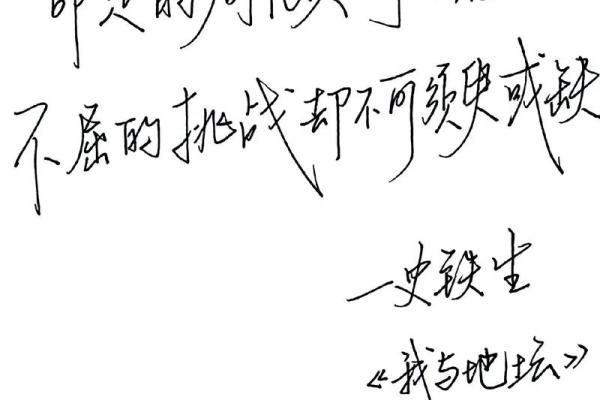 的
不屈的挑战却不可须臾或缺
一史铁生
《我与地坛》